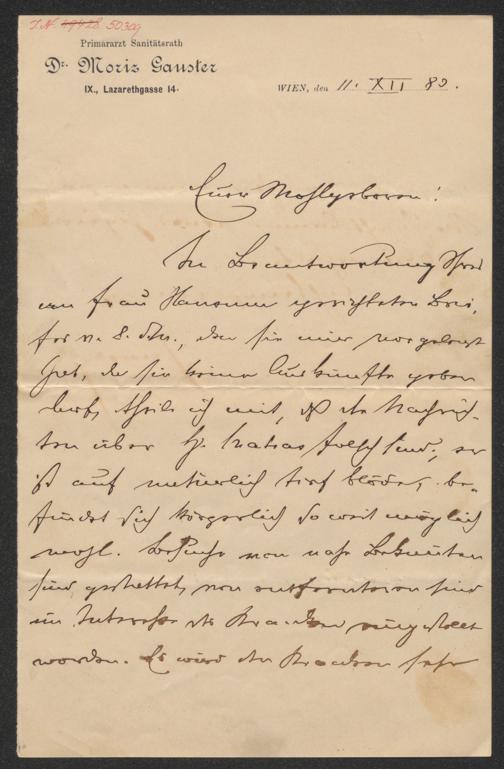 I.N. 50309
Primararzt Sanitätsrath
Dr. Moriz Gauster
IX., Lazarethgasse 14.
WIEN, den 11. XII 89.
Euer Wohlgeboren!
In Beantwortung Ihres
an Frau gerichteten Brie-
fes v. 8. d. M., den sie mir vorgelegt
hat, da sie keine Auskünfte geben
darf, theile ich mit, daß die Nachrich-
ten über H. falsch sind; er
ist auf natürlich tief blöde, be-
findet sich körperlich so weit möglich
wohl. Besuche von nahe Bekannten
sind gestattet, von entfernteren sind
im Interesse des Kranken eingestellt
worden. Es wird der Kranke sehr